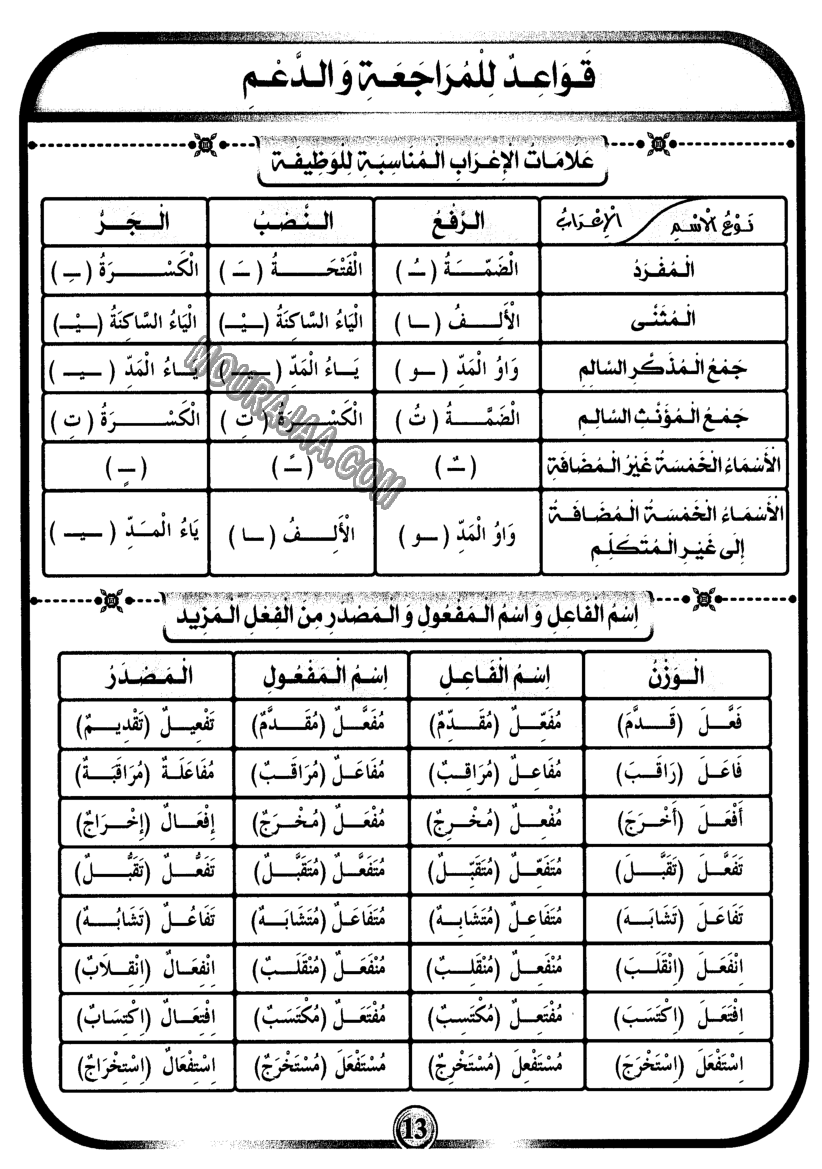 قَوَاعِدٌ لِلْمُرَاجَعَةِ وَ الدَّعْمِ
عَلَامَاتُ الْإِعْرَابِ الْمُنَاسِبَةِ لِلْوَظِيفَة
نَوْعُ الْاسْمِ / الْإِعْرَابُ | الرَّفْعُ | النَّصْبُ | الْجَرُّ
الْمُفْرَدُ | الضَّمَّةُ (ـُ) | الْفَتْحَةُ (ـَ) | الْكَسْرَةُ (ـِ)
الْمُثَنَّى | الْأَلِفُ (ـا) | الْيَاءُ السَّاكِنَةُ (ـيْـ) | الْيَاءُ السَّاكِنَةُ (ـيْـ)
جَمْعُ الْمُذَكَّرِ السَّالِمِ | وَاوُ الْمَدِّ (ـو) | يَاءُ الْمَدِّ (ـيـ) | يَاءُ الْمَدِّ (ـيـ)
جَمْعُ الْمُؤَنَّثِ السَّالِمِ | الضَّمَّةُ (تُ) | الْكَسْرَةُ (تِ) | الْكَسْرَةُ (تِ)
الْأَسْمَاءُ الْخَمْسَةُ غَيْرُ الْمُضَافَةِ | (ـٌ) | (ـً) | (ـٍ)
الْأَسْمَاءُ الْخَمْسَةُ الْمُضَافَةُ
إِلَى غَيْرِ الْمُتَكَلِّمِ | وَاوُ الْمَدِّ (ـو) | الْأَلِفُ (ـا) | يَاءُ الْمَدِّ (ـيـ)
MOURAJAA.COM
اِسْمُ الْفَاعِلِ وَ اسْمُ الْمَفْعُولِ وَ الْمَصْدَرِ مِنَ الْفِعْلِ الْمَزِيد
الْوَزْنُ | اِسْمُ الْفَاعِلِ | اِسْمُ الْمَفْعُولِ | الْمَصْدَرُ
فَعَّلَ (قَدَّمَ) | مُفَعِّلٌ (مُقَدِّمٌ) | مُفَعَّلٌ (مُقَدَّمٌ) | تَفْعِيلٌ (تَقْدِيمٌ)
فَاعَلَ (رَاقَبَ) | مُفَاعِلٌ (مُرَاقِبٌ) | مُفَاعَلٌ (مُرَاقَبٌ) | مُفَاعَلَةٌ (مُرَاقَبَةٌ)
أَفْعَلَ (أَخْرَجَ) | مُفْعِلٌ (مُخْرِجٌ) | مُفْعَلٌ (مُخْرَجٌ) | إِفْعَالٌ (إِخْرَاجٌ)
تَفَعَّلَ (تَقَبَّلَ) | مُتَفَعِّلٌ (مُتَقَبِّلٌ) | مُتَفَعَّلٌ (مُتَقَبَّلٌ) | تَفَعُّلٌ (تَقَبُّلٌ)
تَفَاعَلَ (تَشَابَهَ) | مُتَفَاعِلٌ (مُتَشَابِهٌ) | مُتَفَاعَلٌ (مُتَشَابَهٌ) | تَفَاعُلٌ (تَشَابُهٌ)
اِنْفَعَلَ (اِنْقَلَبَ) | مُنْفَعِلٌ (مُنْقَلِبٌ) | مُنْفَعَلٌ (مُنْقَلَبٌ) | اِنْفِعَالٌ (اِنْقِلَابٌ)
اِفْتَعَلَ (اِكْتَسَبَ) | مُفْتَعِلٌ (مُكْتَسِبٌ) | مُفْتَعَلٌ (مُكْتَسَبٌ) | اِفْتِعَالٌ (اِكْتِسَابٌ)
اِسْتَفْعَلَ (اِسْتَخْرَجَ) | مُسْتَفْعِلَ (مُسْتَخْرِجٌ) | مُسْتَفْعَلَ (مُسْتَخْرَجٌ) | اِسْتِفْعَالٌ (اِسْتِخْرَاجٌ)
13